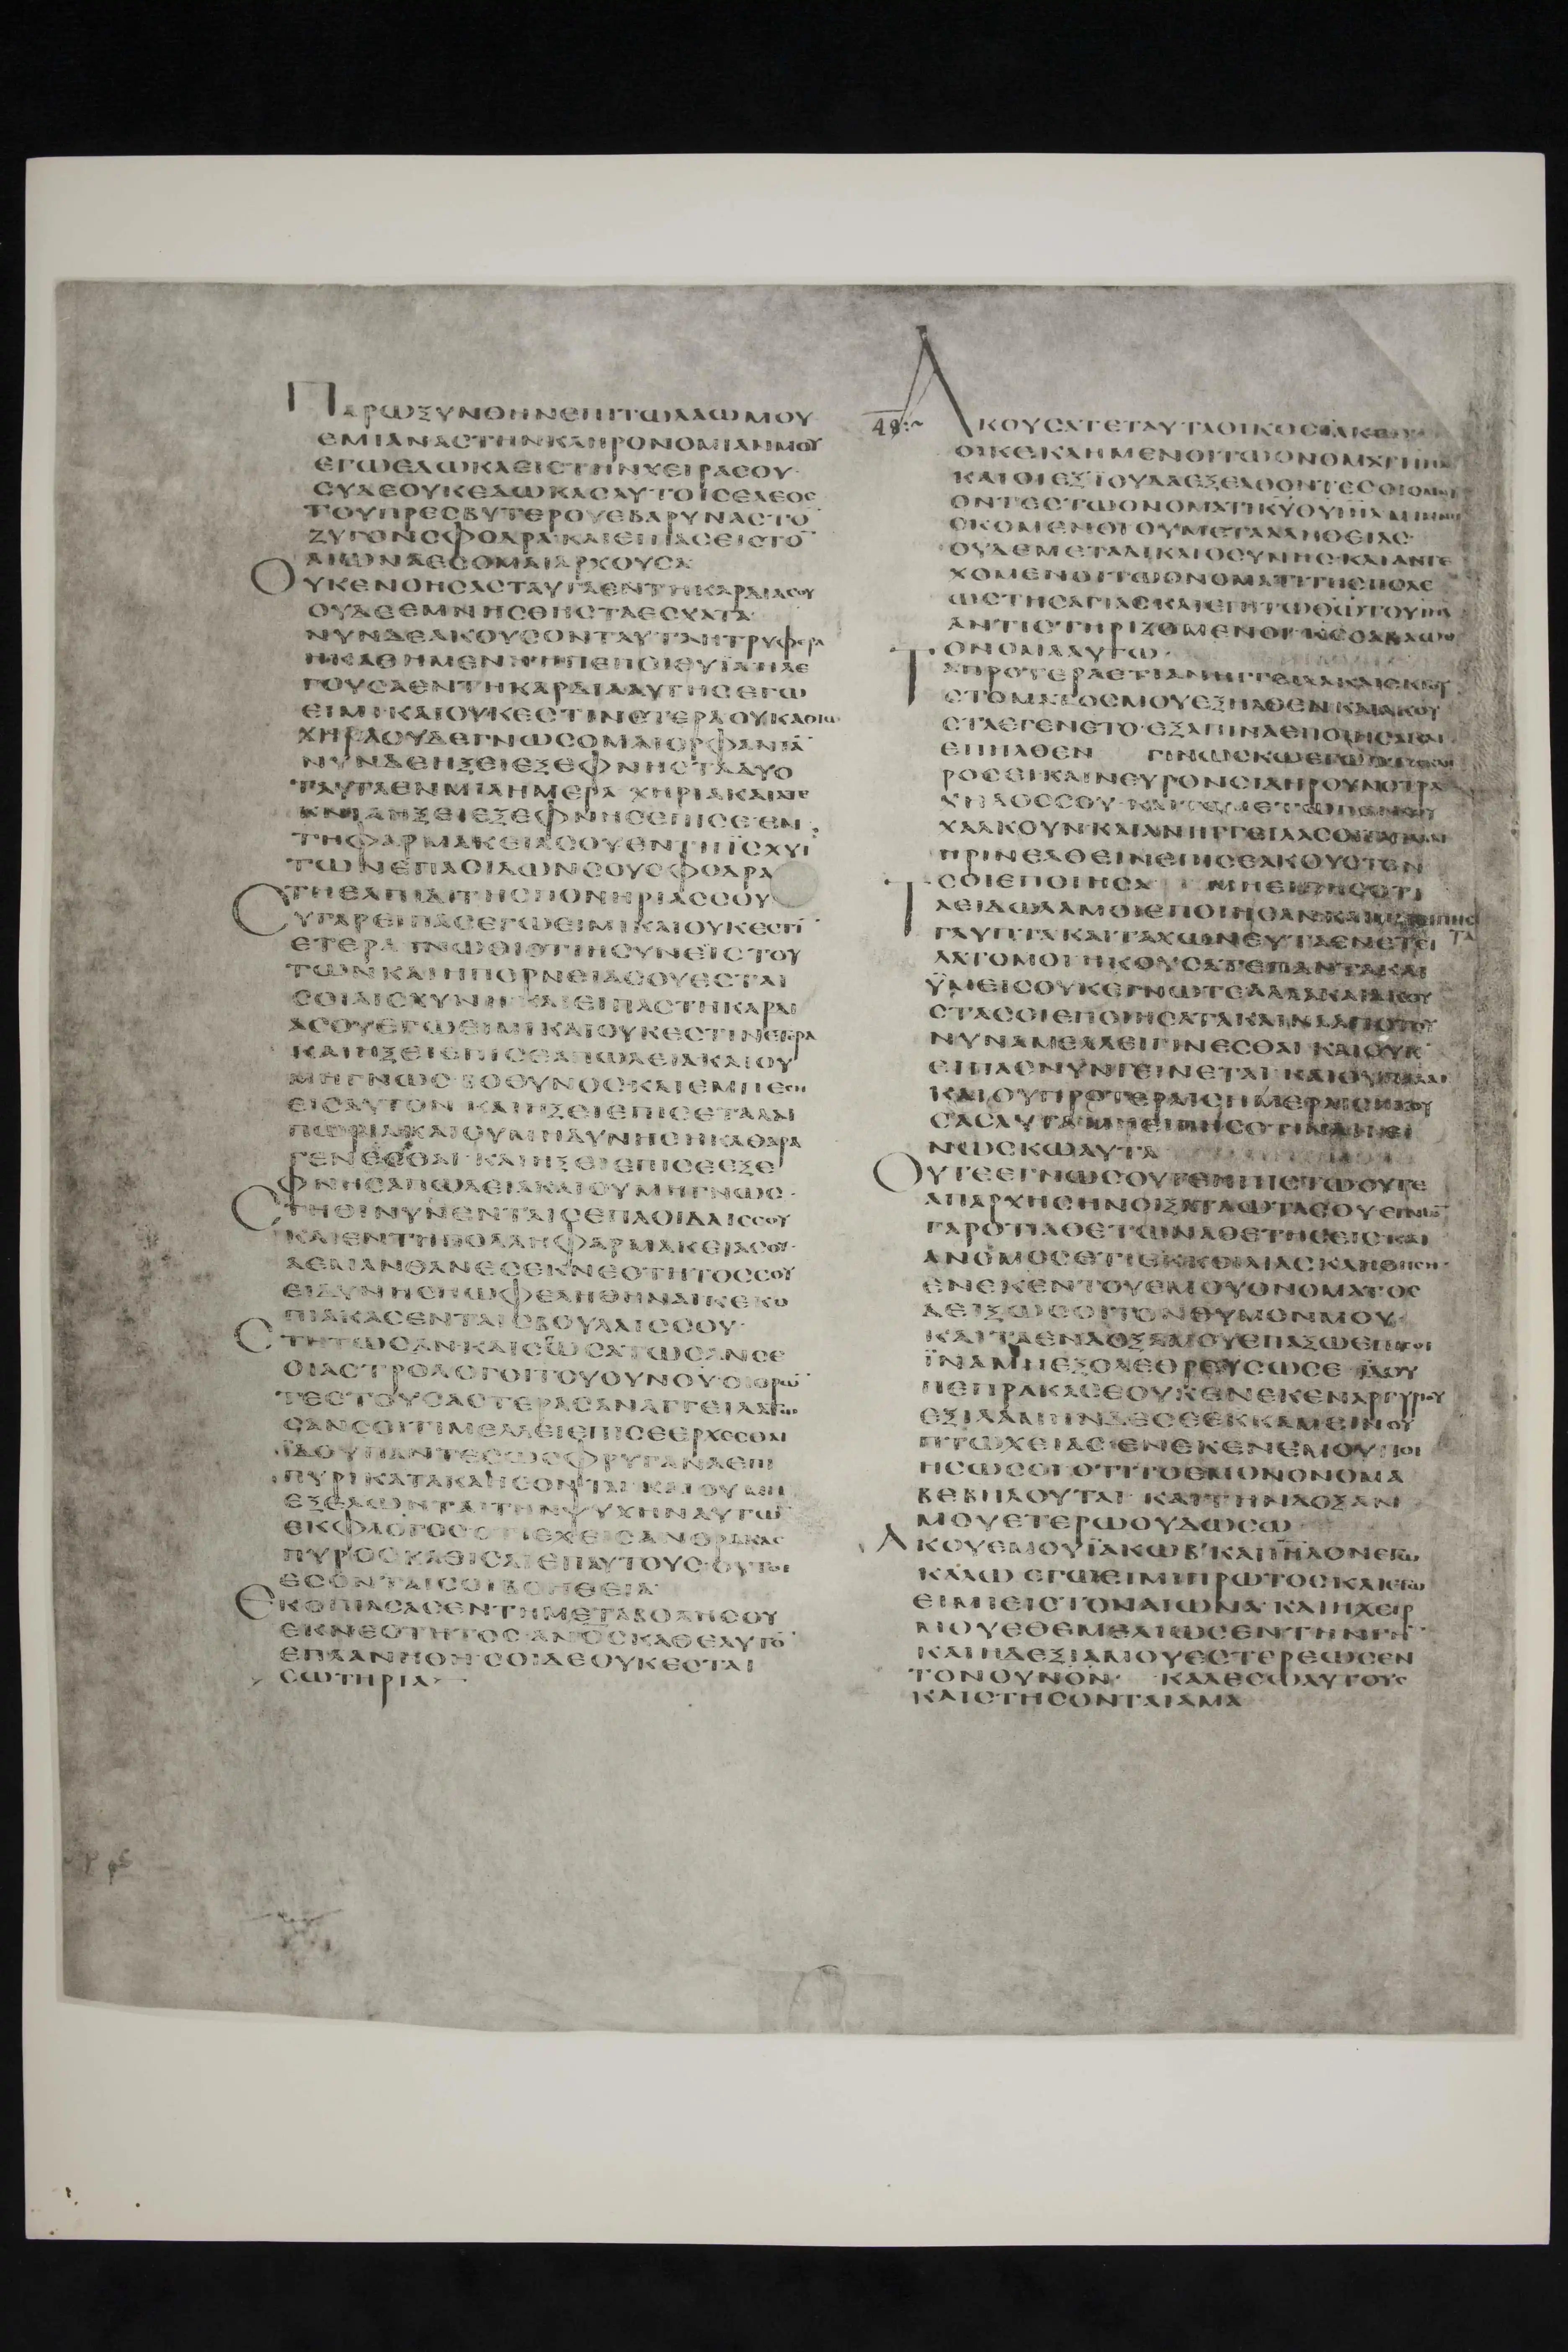 ΠΑΡΩΞΥΝΘΗΝΕΠΙΤΩΛΑΩΜΟΥ
ΕΜΙΑΝΑΣΤΗΝΚΛΗΡΟΝΟΜΙΑΝΜΟΥ
ΕΓΩΕΔΩΚΑΕΙΣΤΗΝΧΕΙΡΑΣΟΥ·
ΣΥΔΕΟΥΚΕΔΩΚΑΣΑΥΤΟΙΣΕΛΕΟΣ
ΤΟΥΠΡΕΣΒΥΤΕΡΟΥΕΒΑΡΥΝΑΣΤΟ̅
ΖΥΓΟΝΣΦΟΔΡΑ·ΚΑΙΕΙΠΑΣΕΙΣΤΟ̅
ΑΙΩΝΑΕΣΟΜΑΙΑΡΧΟΥΣΑ
ΟΥΚΕΝΟΗΣΑΣΤΑΥΤΑΕΝΤΗΚΑΡΔΙΑΣΟΥ
ΟΥΔΕΕΜΝΗΣΘΗΣΤΑΕΣΧΑΤΑ·
ΝΥΝΔΕΑΚΟΥΣΟΝΤΑΥΤΑΗΤΡΥΦΕΡΑ
ΗΚΑΘΗΜΕΝΗΗΠΕΠΟΙΘΥΪΑΗΛΕ
ΓΟΥΣΑΕΝΤΗΚΑΡΔΙΑΑΥΤΗΣΕΓΩ
ΕΙΜΙΚΑΙΟΥΚΕΣΤΙΝΕΤΕΡΑΟΥΚΑΘΙΩ
ΧΗΡΑΟΥΔΕΓΝΩΣΟΜΑΙΟΡΦΑΝΙΑ̅
ΝΥΝΔΕΗΞΕΙΕΞΕΦΝΗΣΤΑΔΥΟ
ΤΑΥΤΑΕΝΜΙΑΗΜΕΡΑ ΧΗΡΙΑΚΑΙΑΤΕ
ΚΝΙΑΗΞΕΙΕΞΕΦΝΗΣΕΠΙΣΕΕΝ
ΤΗΦΑΡΜΑΚΕΙΑΣΟΥΕΝΤΗΪΣΧΥΙ
ΤΩΝΕΠΑΟΙΔΩΝΣΟΥΣΦΟΔΡΑ
ΤΗΕΛΠΙΔΙΤΗΣΠΟΝΗΡΙΑΣΣΟΥ
ΣΥΓΑΡΕΙΠΑΣΕΓΩΕΙΜΙΚΑΙΟΥΚΕΣΤΙ̅
ΕΤΕΡΑ ΓΝΩΘΙΟΤΙΗΣΥΝΕΪΣΤΟΥ
ΤΩΝΚΑΙΗΠΟΡΝΕΙΑΣΟΥΕΣΤΑΙ
ΣΟΙΑΙΣΧΥΝΗ ΚΑΙΕΙΠΑΣΤΗΚΑΡΔΙ
ΑΣΟΥΕΓΩΕΙΜΙΚΑΙΟΥΚΕΣΤΙΝΕΤΕΡΑ
ΚΑΙΗΞΕΙΕΠΙΣΕΑΠΩΛΕΙΑΚΑΙΟΥ
ΜΗΓΝΩΣ ΒΟΘΥΝΟΣΚΑΙΕΜΠΕΣΗ
ΕΙΣΑΥΤΟΝ ΚΑΙΗΞΕΙΕΠΙΣΕΤΑΛΑΙ
ΠΩΡΙΑΚΑΙΟΥΜΗΔΥΝΗΣΗΚΑΘΑΡΑ
ΓΕΝΕΣΘΑΙ ΚΑΙΗΞΕΙΕΠΙΣΕΕΞΕ
ΦΝΗΣΑΠΩΛΕΙΑΚΑΙΟΥΜΗΓΝΩΣ·
ΣΤΗΘΙΝΥΝΕΝΤΑΙΣΕΠΑΟΙΔΑΙΣΣΟΥ
ΚΑΙΕΝΤΗΠΟΛΛΗΦΑΡΜΑΚΕΙΑΣΟΥ·
ΑΕΜΑΝΘΑΝΕΣΕΚΝΕΟΤΗΤΟΣΣΟΥ
ΕΙΔΥΝΗΣΗΩΦΕΛΗΘΗΝΑΙΚΕΚΟ
ΠΙΑΚΑΣΕΝΤΑΙΣΒΟΥΛΑΙΣΣΟΥ·
ΣΤΗΤΩΣΑΝΚΑΙΣΩΣΑΤΩΣΑΝΣΕ
ΟΙΑΣΤΡΟΛΟΓΟΙΤΟΥΟΥΝΟΥ ΟΙΟΡΩ̅
ΤΕΣΤΟΥΣΑΣΤΕΡΑΣΑΝΑΓΓΕΙΛΑΤΩ
ΣΑΝΣΟΙΤΙΜΕΛΛΕΙΕΠΙΣΕΕΡΧΕΣΘΑΙ
ΪΔΟΥΠΑΝΤΕΣΩΣΦΡΥΓΑΝΑΕΠΙ
ΠΥΡΙΚΑΤΑΚΑΗΣΟΝΤΑΙ ΚΑΙΟΥΜΗ
ΕΞΕΛΩΝΤΑΙΤΗΝΨΥΧΗΝΑΥΤΩ̅
ΕΚΦΛΟΓΟΣΟΤΙΕΧΕΙΣΑΝΘΡΑΚΑΣ
ΠΥΡΟΣΚΑΘΙΣΑΙΕΠΑΥΤΟΥΣ·ΟΥΤΟΙ
ΕΣΟΝΤΑΙΣΟΙΒΟΗΘΕΙΑ·
ΕΚΟΠΙΑΣΑΣΕΝΤΗΜΕΤΑΒΟΛΗΣΟΥ
ΕΚΝΕΟΤΗΤΟΣ·ΑΝΟΣΚΑΘΕΑΥΤΟ̅
ΕΠΛΑΝΗΘΗ·ΣΟΙΔΕΟΥΚΕΣΤΑΙ
ΣΩΤΗΡΙΑ·
48:~
ΑΚΟΥΣΑΤΕΤΑΥΤΑΟΙΚΟΣΪΑΚΩΒ
ΟΙΚΕΚΛΗΜΕΝΟΙΤΩΟΝΟΜΑΤΙΙΗΛ
ΚΑΙΟΙΕΞΪΟΥΔΑΕΞΕΛΘΟΝΤΕΣΟΙΟΜΝΥ
ΟΝΤΕΣΤΩΟΝΟΜΑΤΙΚΥΘΥΙΗΛ
ΣΚΟΜΕΝΟΙΟΥΜΕΤΑΑΛΗΘΕΙΑΣ·
ΟΥΔΕΜΕΤΑΔΙΚΑΙΟΣΥΝΗΣ·ΚΑΙΑΝΤΕ
ΧΟΜΕΝΟΙΤΩΟΝΟΜΑΤΙΤΗΣΠΟΛΕ
ΩΣΤΗΣΑΓΙΑΣΚΑΙΕΠΙΤΩΘΩΤΟΥΙΗΛ
ΑΝΤΙΣΤΗΡΙΖΟΜΕΝΟΙ ΚΣΣΑΒΑΩΘ
ΟΝΟΜΑΑΥΤΩ·
ΤΑΠΡΟΤΕΡΑΕΤΙΑΝΗΓΓΕΙΛΑΚΑΙΕΚΤΟΥ
ΣΤΟΜΑΤΟΣΜΟΥΕΞΗΛΘΕΝΚΑΙΑΚΟΥ
ΣΤΑΕΓΕΝΕΤΟ·ΕΞΑΠΙΝΑΕΠΟΙΗΣΑΚΑΙ
ΕΠΗΛΘΕΝ ΓΙΝΩΣΚΩΕΓΩΟΤΙΣΚΛΗ
ΡΟΣΕΙΚΑΙΝΕΥΡΟΝΣΙΔΗΡΟΥΝΟΤΡΑ
ΧΗΛΟΣΣΟΥ ΚΑΙΤΟΜΕΤΩΠΟΝΣΟΥ
ΧΑΛΚΟΥΝΚΑΙΑΝΗΓΓΕΙΛΑΣΟΙΠΑΛΑΙ
ΠΡΙΝΕΛΘΕΙΝΕΠΙΣΕΑΚΟΥΣΤΟΝ
ΣΟΙΕΠΟΙΗΣΑ ΜΗΕΙΠΗΣΟΤΙ
ΤΑΕΙΔΩΛΑΜΟΙΕΠΟΙΗΣΑΝΚΑΙ
ΓΛΥΠΤΑΚΑΙΤΑΧΩΝΕΥΤΑΕΝΕΤΕΙ
ΛΑΤΟΜΟΙ ΗΚΟΥΣΑΤΕΠΑΝΤΑΚΑΙ
ΫΜΕΙΣΟΥΚΕΓΝΩΤΕΑΛΛΑΚΑΙΑΚΟΥ
ΣΤΑΣΟΙΕΠΟΙΗΣΑΤΑΚΑΙΝΑΑΠΟΤΟΥ
ΝΥΝΑΜΕΛΛΕΙΓΙΝΕΣΘΑΙ ΚΑΙΟΥΚ
ΕΙΠΑΣΝΥΝΓΕΙΝΕΤΑΙ ΚΑΙΟΥΠΑΛΑΙ
ΚΑΙΟΥΠΡΟΤΕΡΑΙΣΗΜΕΡΑΙΣΗΚΟΥ
ΣΑΣΑΥΤΑΜΗΕΙΠΗΣΟΤΙΝΑΙΓΕΙ
ΝΩΣΚΩΑΥΤΑ
ΟΥΤΕΕΓΝΩΣΟΥΤΕΗΠΙΣΤΩΟΥΤΕ
ΑΠΑΡΧΗΣΗΝΟΙΞΑΤΑΩΤΑΣΟΥΕΓΝΩ̅
ΓΑΡΟΤΙΑΘΕΤΩΝΑΘΕΤΗΣΕΙΣΚΑΙ
ΑΝΟΜΟΣΕΤΙΕΚΚΟΙΛΙΑΣΚΛΗΘΗΣΗ·
ΕΝΕΚΕΝΤΟΥΕΜΟΥΟΝΟΜΑΤΟΣ
ΔΕΙΞΩΣΟΙΤΟΝΘΥΜΟΝΜΟΥ
ΚΑΙΤΑΕΝΔΟΞΑΜΟΥΕΠΑΞΩΕΠΙΣΟΙ
ΪΝΑΜΗΕΞΟΛΕΘΡΕΥΣΩΣΕ ΪΔΟΥ
ΠΕΠΡΑΚΑΣΕΟΥΧΕΝΕΚΕΝΑΡΓΥΡΙΟΥ
ΕΞΙΛΑΜΗΝΔΕΣΕΕΚΚΑΜΕΙΝΟΥ
ΠΤΩΧΕΙΑΣ·ΕΝΕΚΕΝΕΜΟΥΠΟΙ
ΗΣΩΣΟΙΟΤΙΤΟΕΜΟΝΟΝΟΜΑ
ΒΕΒΗΛΟΥΤΑΙ ΚΑΙΤΗΝΔΟΞΑΝ
ΜΟΥΕΤΕΡΩΟΥΔΩΣΩ
ΑΚΟΥΕΜΟΥΪΑΚΩΒ'ΚΑΙΙΗΛΟΝΕΓΩ
ΚΑΛΩ ΕΓΩΕΙΜΙΠΡΩΤΟΣΚΑΙΕΓΩ
ΕΙΜΙΕΙΣΤΟΝΑΙΩΝΑ·ΚΑΙΗΧΕΙΡ
ΜΟΥΕΘΕΜΕΛΙΩΣΕΝΤΗΝΓΗ̅
ΚΑΙΗΔΕΞΙΑΜΟΥΕΣΤΕΡΕΩΣΕΝ
ΤΟΝΟΥΝΟΝ· ΚΑΛΕΣΩΑΥΤΟΥΣ
ΚΑΙΣΤΗΣΟΝΤΑΙΑΜΑ